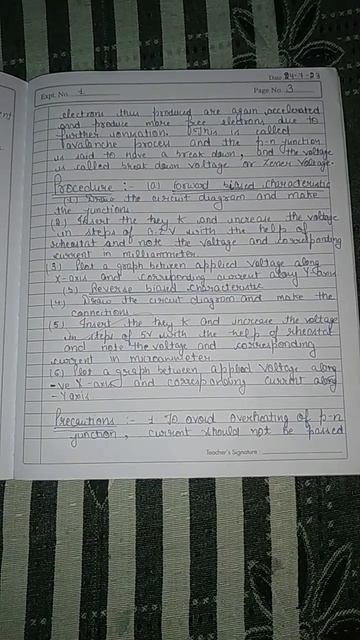 Date 24-7-23
Expt. No. 1
Page No. 3
electrons thus produced are again accelerated
and produce more free electrons due to
further ionisation. This is called
avalanche process and the p-n junction
is said to have a break down, and the voltage
is called break down voltage or Zener Voltage.
Procedure :- (a) forward biased characteristic
(1) Draw the circuit diagram and make
the junctions.
(2) Insert the they K and increase the voltage
in steps of 0.2 V with the help of
rheostat and note the voltage and corresponding
current in milliammeter.
(3) Plot a graph between applied voltage along
X-axis and corresponding current along Y-axis
(b) Reverse biased characteristic
(4) Draw the circuit diagram and make the
connections.
(5) Insert the they K and increase the voltage
in steps of 5V with the help of rheostat
and note the voltage and corresponding
current in microammeter.
(6) Plot a graph between applied voltage along
-ve X-axis and corresponding current along
-Y axis
Precautions :- 1 To avoid overheating of p-n
junction, current should not be passed
Teacher's Signature